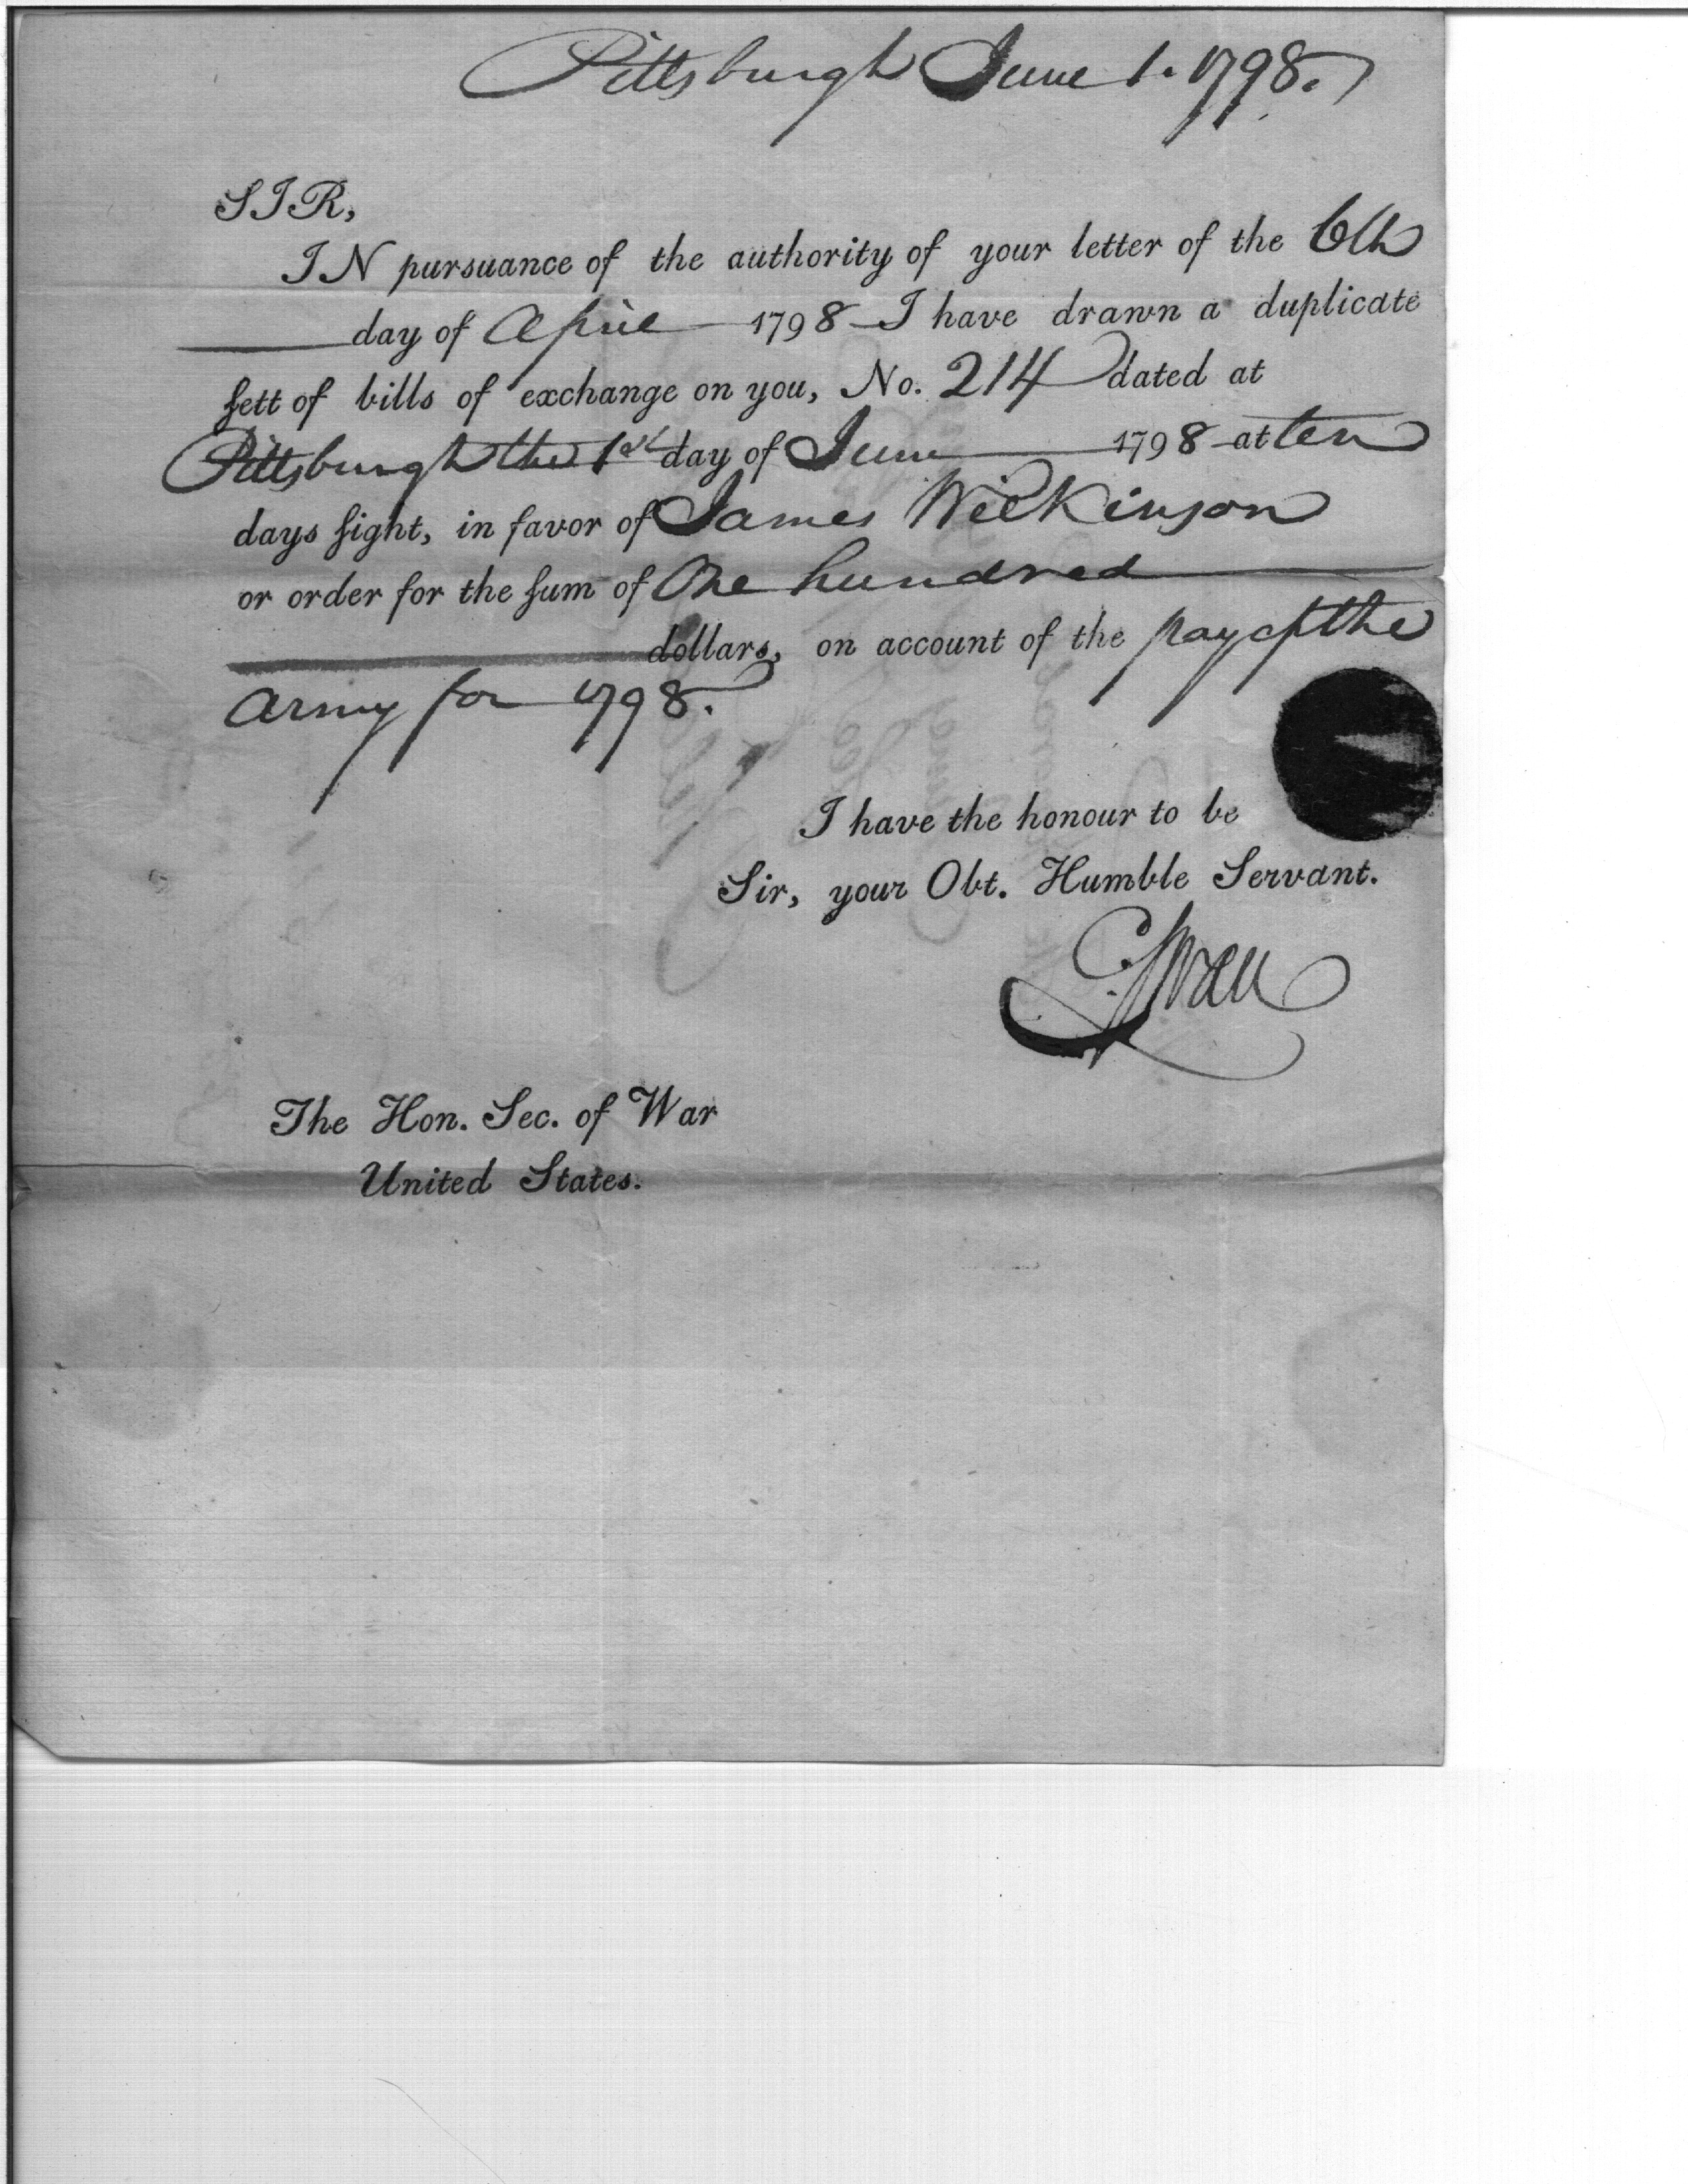 Pittsburgh June 1. 1798.
SIR,
IN pursuance of the authority of your letter of the 6th
day of April 1798 I have drawn a duplicate
ſett of bills of exchange on you, No. 214 dated at
Pittsburgh the 1st day of June 1798 at ten
days ſight, in favor of James Wilkinson
or order for the ſum of One hundred
dollars, on account of the pay of the
Army for 1798.
I have the honour to be
Sir, your Obt. Humble Servant.
C. Swan
The Hon. Sec. of War
United States.